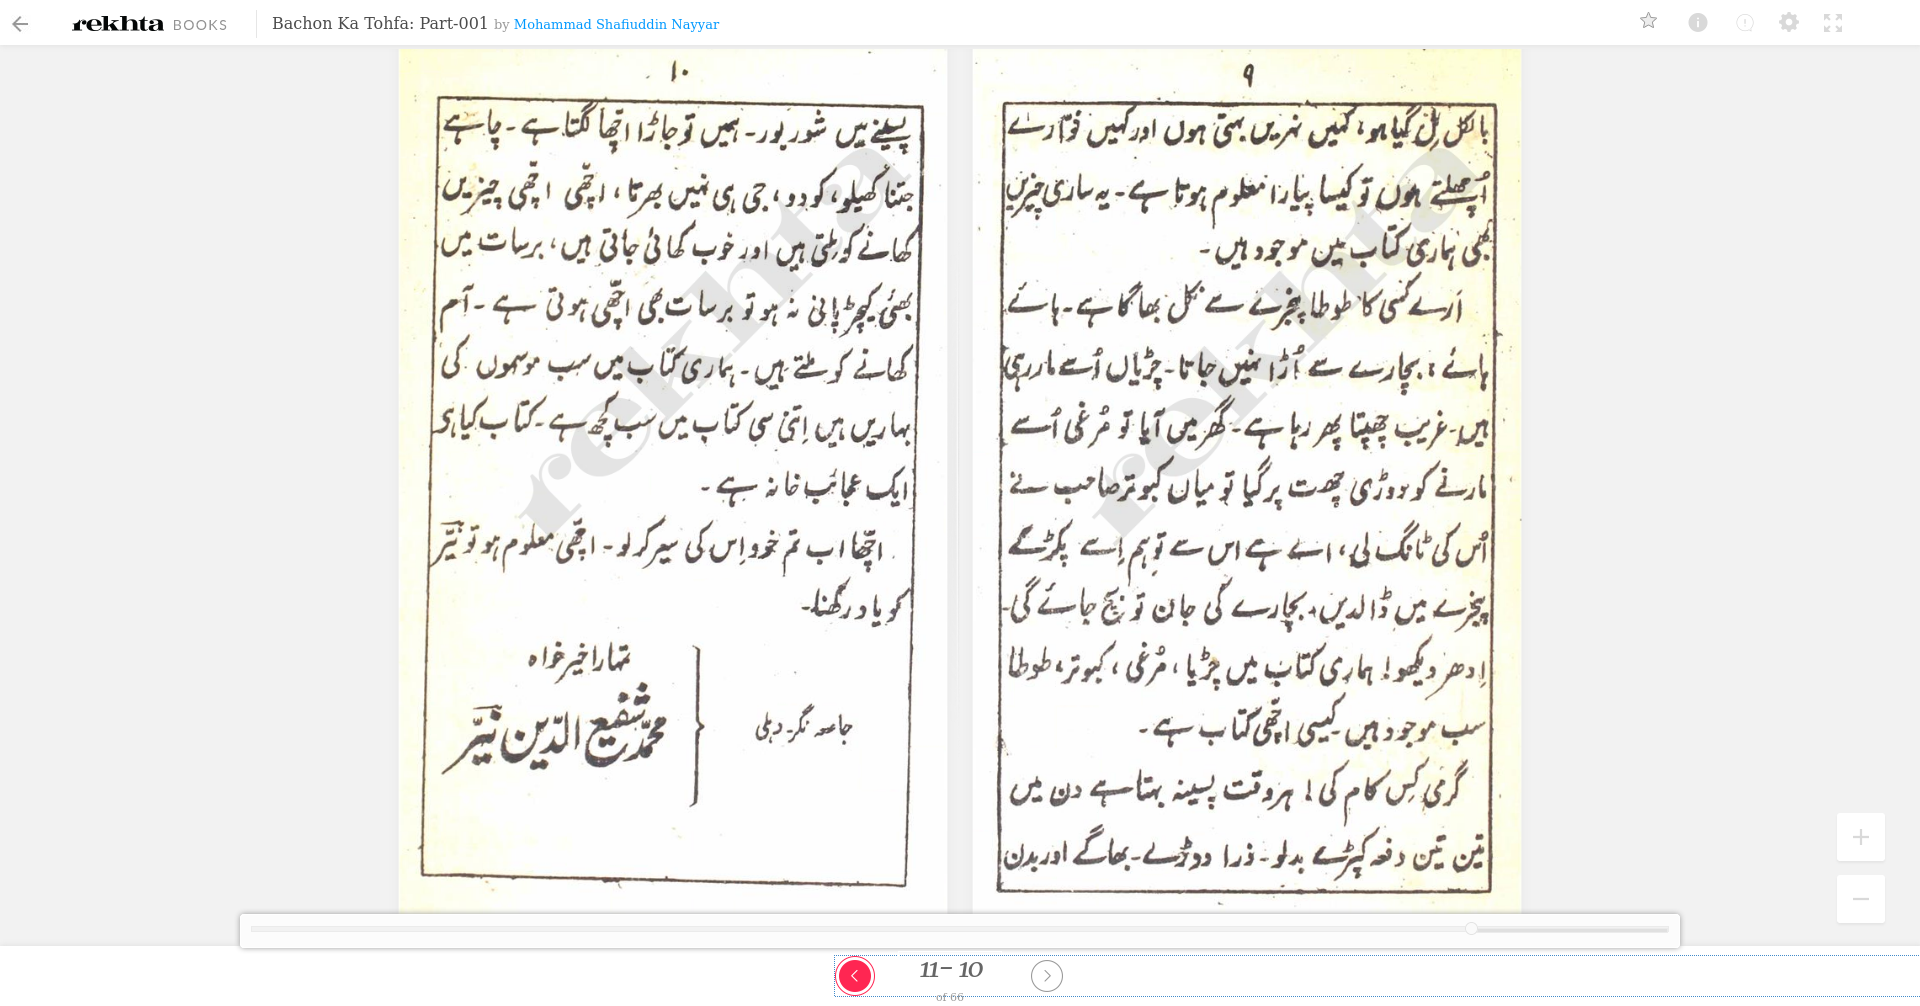 rekhta BOOKS
Bachon Ka Tohfa: Part-001 by Mohammad Shafiuddin Nayyar
۹
بالکل کِھل گیا ہو، کہیں نہریں بہتی ہوں اور کہیں فوّارے
اُچھلتے ہوں تو کیسا پیارا معلوم ہوتا ہے۔ یہ ساری چیزیں
بھی ہماری کتاب میں موجود ہیں۔
اَرے کسی کا طوطا پنجرے سے نکل بھاگا ہے۔ ہائے
ہائے! بچارے سے اُڑا نہیں جاتا۔ چڑیاں اُسے مار رہی
ہیں۔ غریب چھپتا پھر رہا ہے۔ گھر میں آیا تو مُرغی اُسے
مارنے کو دوڑی چھت پر گیا تو میاں کبوتر صاحب نے
اُس کی ٹانگ لی، اے ہے اس سے تو ہم اِسے پکڑ کے
پنجرے میں ڈالدیں، بچارے کی جان تو بچ جائے گی۔
اِدھر دیکھو! ہماری کتاب میں چڑیا، مُرغی، کبوتر، طوطا
سب موجود ہیں۔ کیسی اچھّی کتاب ہے۔
گرمی کِس کام کی! ہر وقت پسینہ بہتا ہے دن میں
تین تین دفعہ کپڑے بدلو۔ ذرا دوڑے۔ بھاگے اور بدن
۱۰
پسینے میں شور بور۔ ہمیں تو جاڑا اچھّا لگتا ہے۔ چاہے
جتنا کھیلو، کودو، جی ہی نہیں بھرتا، اچھّی اچھّی چیزیں
کھانے کو ملتی ہیں اور خوب کھائی جاتی ہیں، برسات میں
بھئی کیچڑ پانی نہ ہو تو برسات بھی اچھّی ہوتی ہے۔ آم
کھانے کو ملتے ہیں۔ ہماری کتاب میں سب موسموں کی
بہاریں ہیں اِتنی سی کتاب میں سب کچھ ہے۔ کتاب کیا ہی
ایک عجائب خانہ ہے۔
اچھّا اب تم خود اِس کی سیر کر لو۔ اچھّی معلوم ہو تو نیّر
کو یاد رکھنا۔
تمہارا خیر خواہ
محمّد شفیع الدّین نیّر
جامعہ نگر۔ دہلی
11- 10
of 66